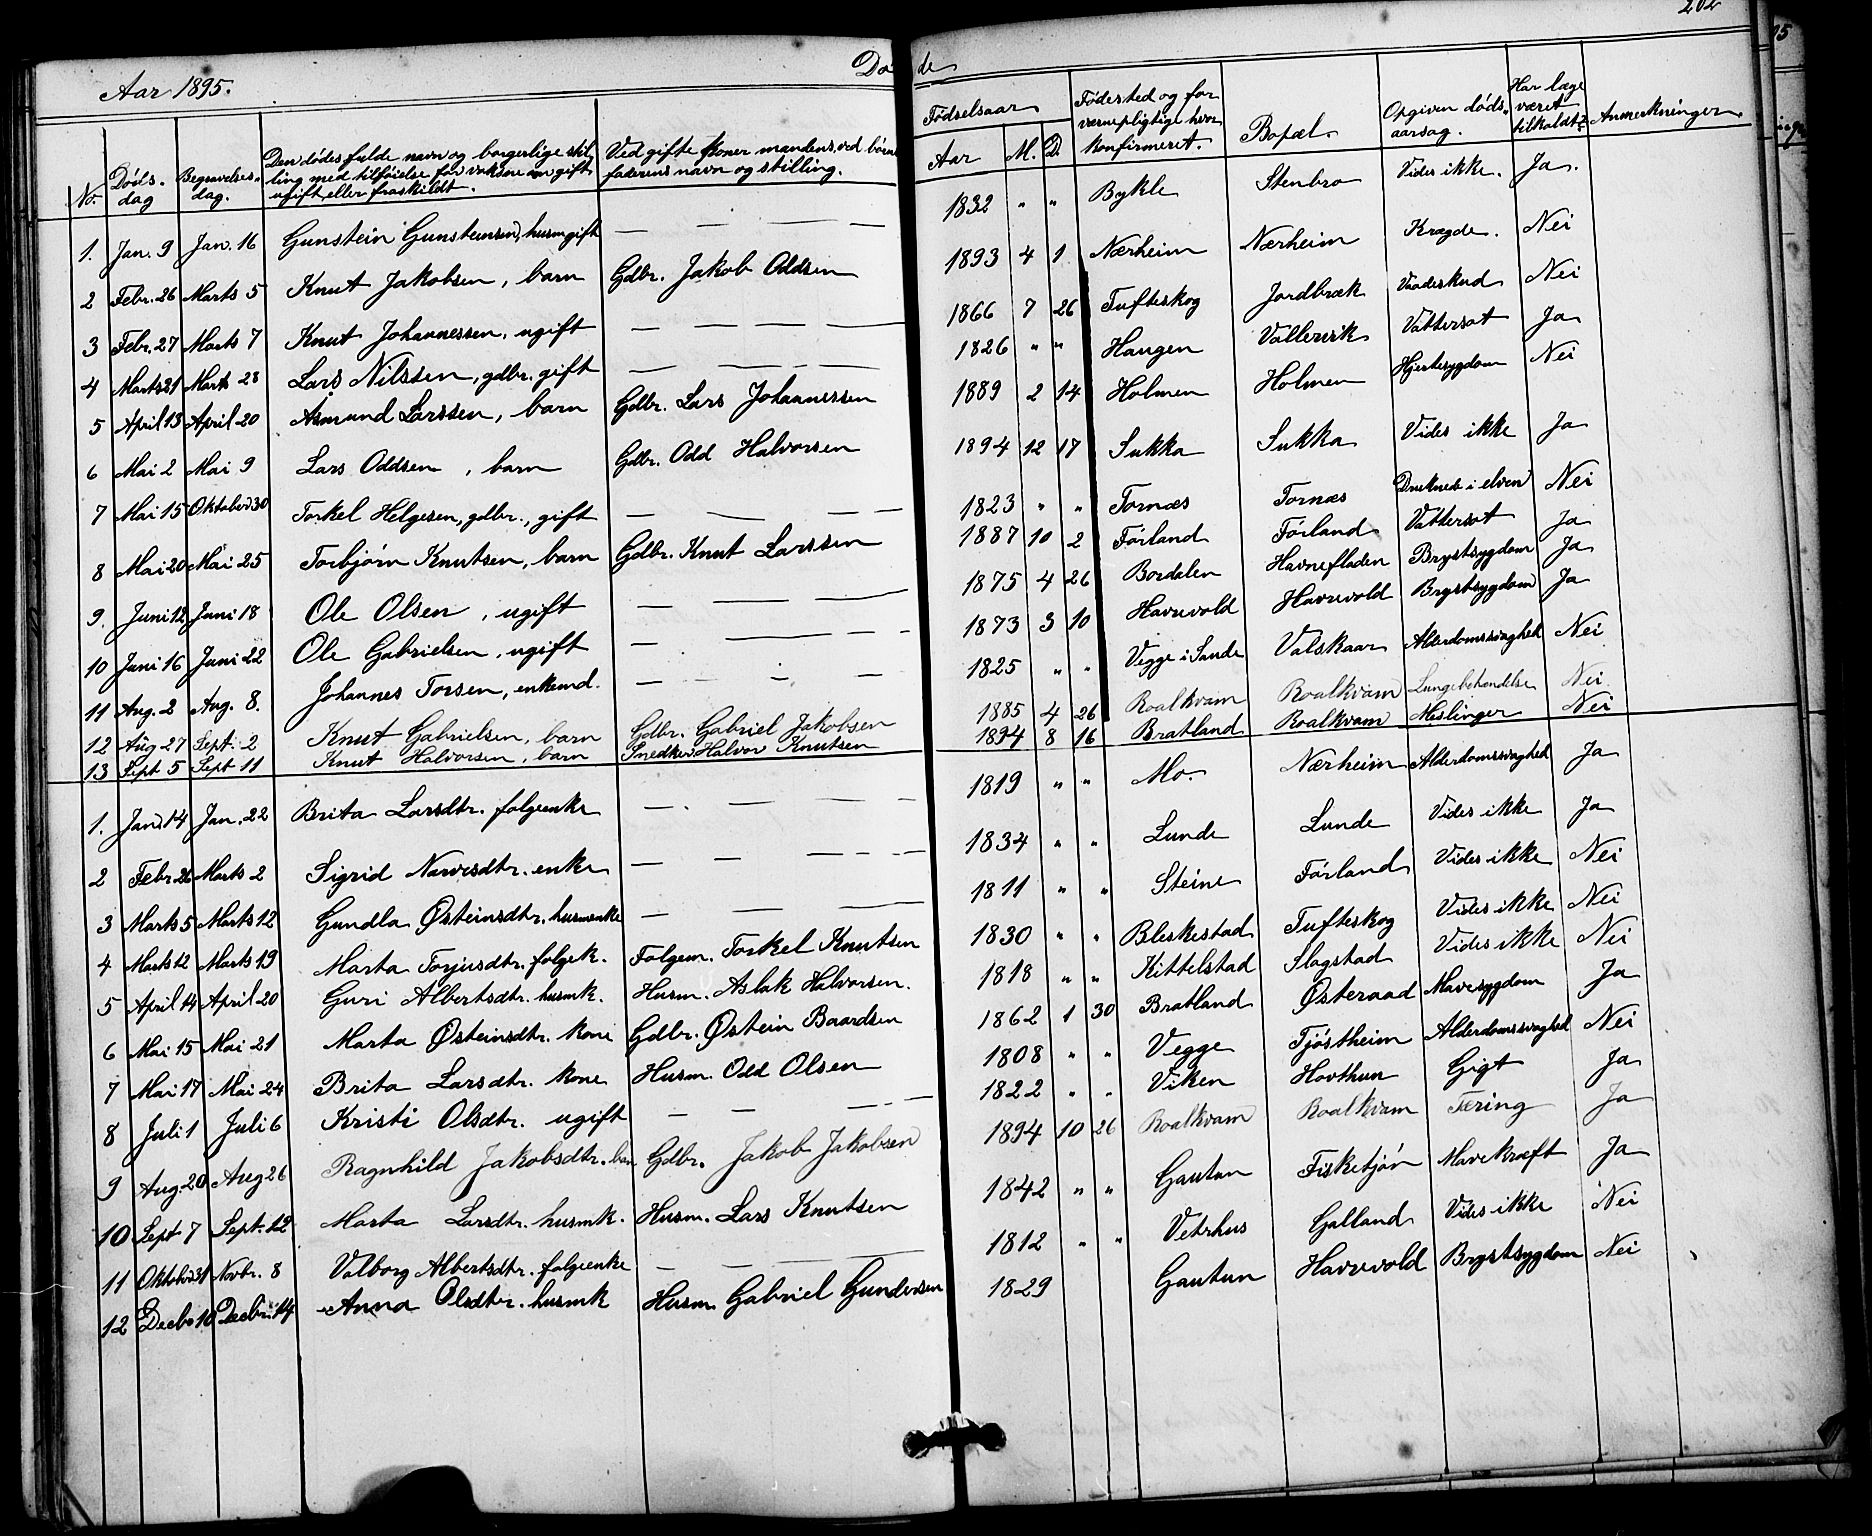 202
Aar 1895. Døde
No. Døds-dag Begravelses-dag. Den dødes fulde navn og borgerlige stilling med tilføielse for voksne om gift ugift eller fraskildt. Ved gifte koner mandens, ved børn faderens navn og stilling. Fødselsaar Aar M. D. Fødested og for værnepligtige hvor konfirmeret. Bopæl Opgiven døds-aarsag. Har læge været tilkaldt? Anmerkninger
1. Jan. 9 Jan. 16 Gunstein Gunsteinsen, husm. gift — — — 1832 " " Bykle Stenbro Vides ikke. Ja.
2 Febr. 26 Marts 5 Knut Jakobsen, barn Gdbr. Jakob Oddsen 1893 4 1 Nærheim Nærheim Krægde. Nei
3 Febr. 27 Marts 7 Knut Johannessen, ugift — — — — 1866 7 26 Tufteskog Jordbræk Vaadeskud Nei
4 Marts 21 Marts 28 Lars Nilssen, gdbr. gift — — — — 1826 " " Haugen Vallervik Vattersot Ja
5 April 13 April 20 Asmund Larssen, barn Gdbr. Lars Johannessen 1889 2 14 Holmen Holmen Hjertesygdom Nei
6 Mai 2 Mai 9 Lars Oddsen, barn Gdbr. Odd Halvorsen 1894 12 17 Sukka Sukka Vides ikke Ja
7 Mai 15 Oktober 30 Torkel Helgesen, gdbr., gift — — — — 1823 " " Tornæs Tornæs Druknede i elven Nei
8 Mai 20 Mai 25 Torbjørn Knutsen, barn Gdbr. Knut Larssen 1887 10 2 Førland Førland Vattersot Ja
9. Juni 12 Juni 18 Ole Olsen, ugift — — — 1875 4 26 Bordalen Havnefladen Brystsygdom Ja
10 Juni 16 Juni 22 Ole Gabrielsen, ugift — — — — 1873 3 10 Havrevold Havrevold Brystsygdom Ja
11 Aug. 2 Aug. 8. Johannes Torsen, enkemd. — — — — 1825 " " Vegge i Sande Valskaar Alderdomssvaghed Nei
12 Aug 27 Sept. 2 Knut Gabrielsen, barn Gdbr. Gabriel Jakobsen 1885 4 26 Roalkvam Roalkvam Lungebetændelse Nei
13 Sept 5 Sept 11 Knut Halvorsen, barn Snedker Halvor Knutsen 1894 8 16 Bratland Roalkvam Meslinger Nei
1. Jan. 14 Jan. 22 Brita Larsdtr. folgeenke — — — — 1819 " " Mo. Nærheim Alderdomssvaghed Ja
2 Febr 26 Marts 2 Sigrid Narvesdtr. enke — — — — 1834 " " Lunde Lunde Vides ikke Ja
3 Marts 5 Marts 12 Gundla Østeinsdtr. husmenke — — — 1811 " " Steine Førland Vides ikke Nei
4 Marts 12 Marts 19 Marta Torjusdtr. folgek. Folgem. Torkel Knutsen 1830 " " Bleskestad Tufteskog Vides ikke Nei
5 April 14 April 20 Guri Albertsdtr. husmk. Husm. Aslak Halvorsen. 1818 " " Kittelstad Slagstad Vides ikke Nei
6 Mai 15 Mai 21 Marta Østeinsdtr. kone Gdbr. Østein Baardsen 1862 1 30 Bratland Østeraad Mavesygdom Ja
7 Mai 17 Mai 24 Brita Larsdtr. kone Husm. Odd Olsen 1808 " " Vegge Tjøstheim Alderdomssvaghed Nei
8 Juli 1 Juli 6 Kristi Olsdtr. ugift — — — — 1822 " " Viken Hovthun Gigt Ja
9 Aug. 20 Aug 26 Ragnhild Jakobsdtr. barn Gdbr. Jakob Jakobsen 1894 10 26 Roalkvam Roalkvam Tæring Ja
10 Sept 7 Sept. 12 Marta Larsdtr. husmk. Husm. Lars Knutsen 1842 " " Gautun Fisketjøn Mavekræft Ja
11 Oktober 31 Novbr. 8 Valborg Albertsdtr. folgeenke — — — 1812 " " Vetrhus Galland Vides ikke Nei
12 Decbr 10 Decbr. 14 Anna Olsdtr. husmk Husm. Gabriel Gundersen 1829 Gautun Havrevold Brystsygdom Nei